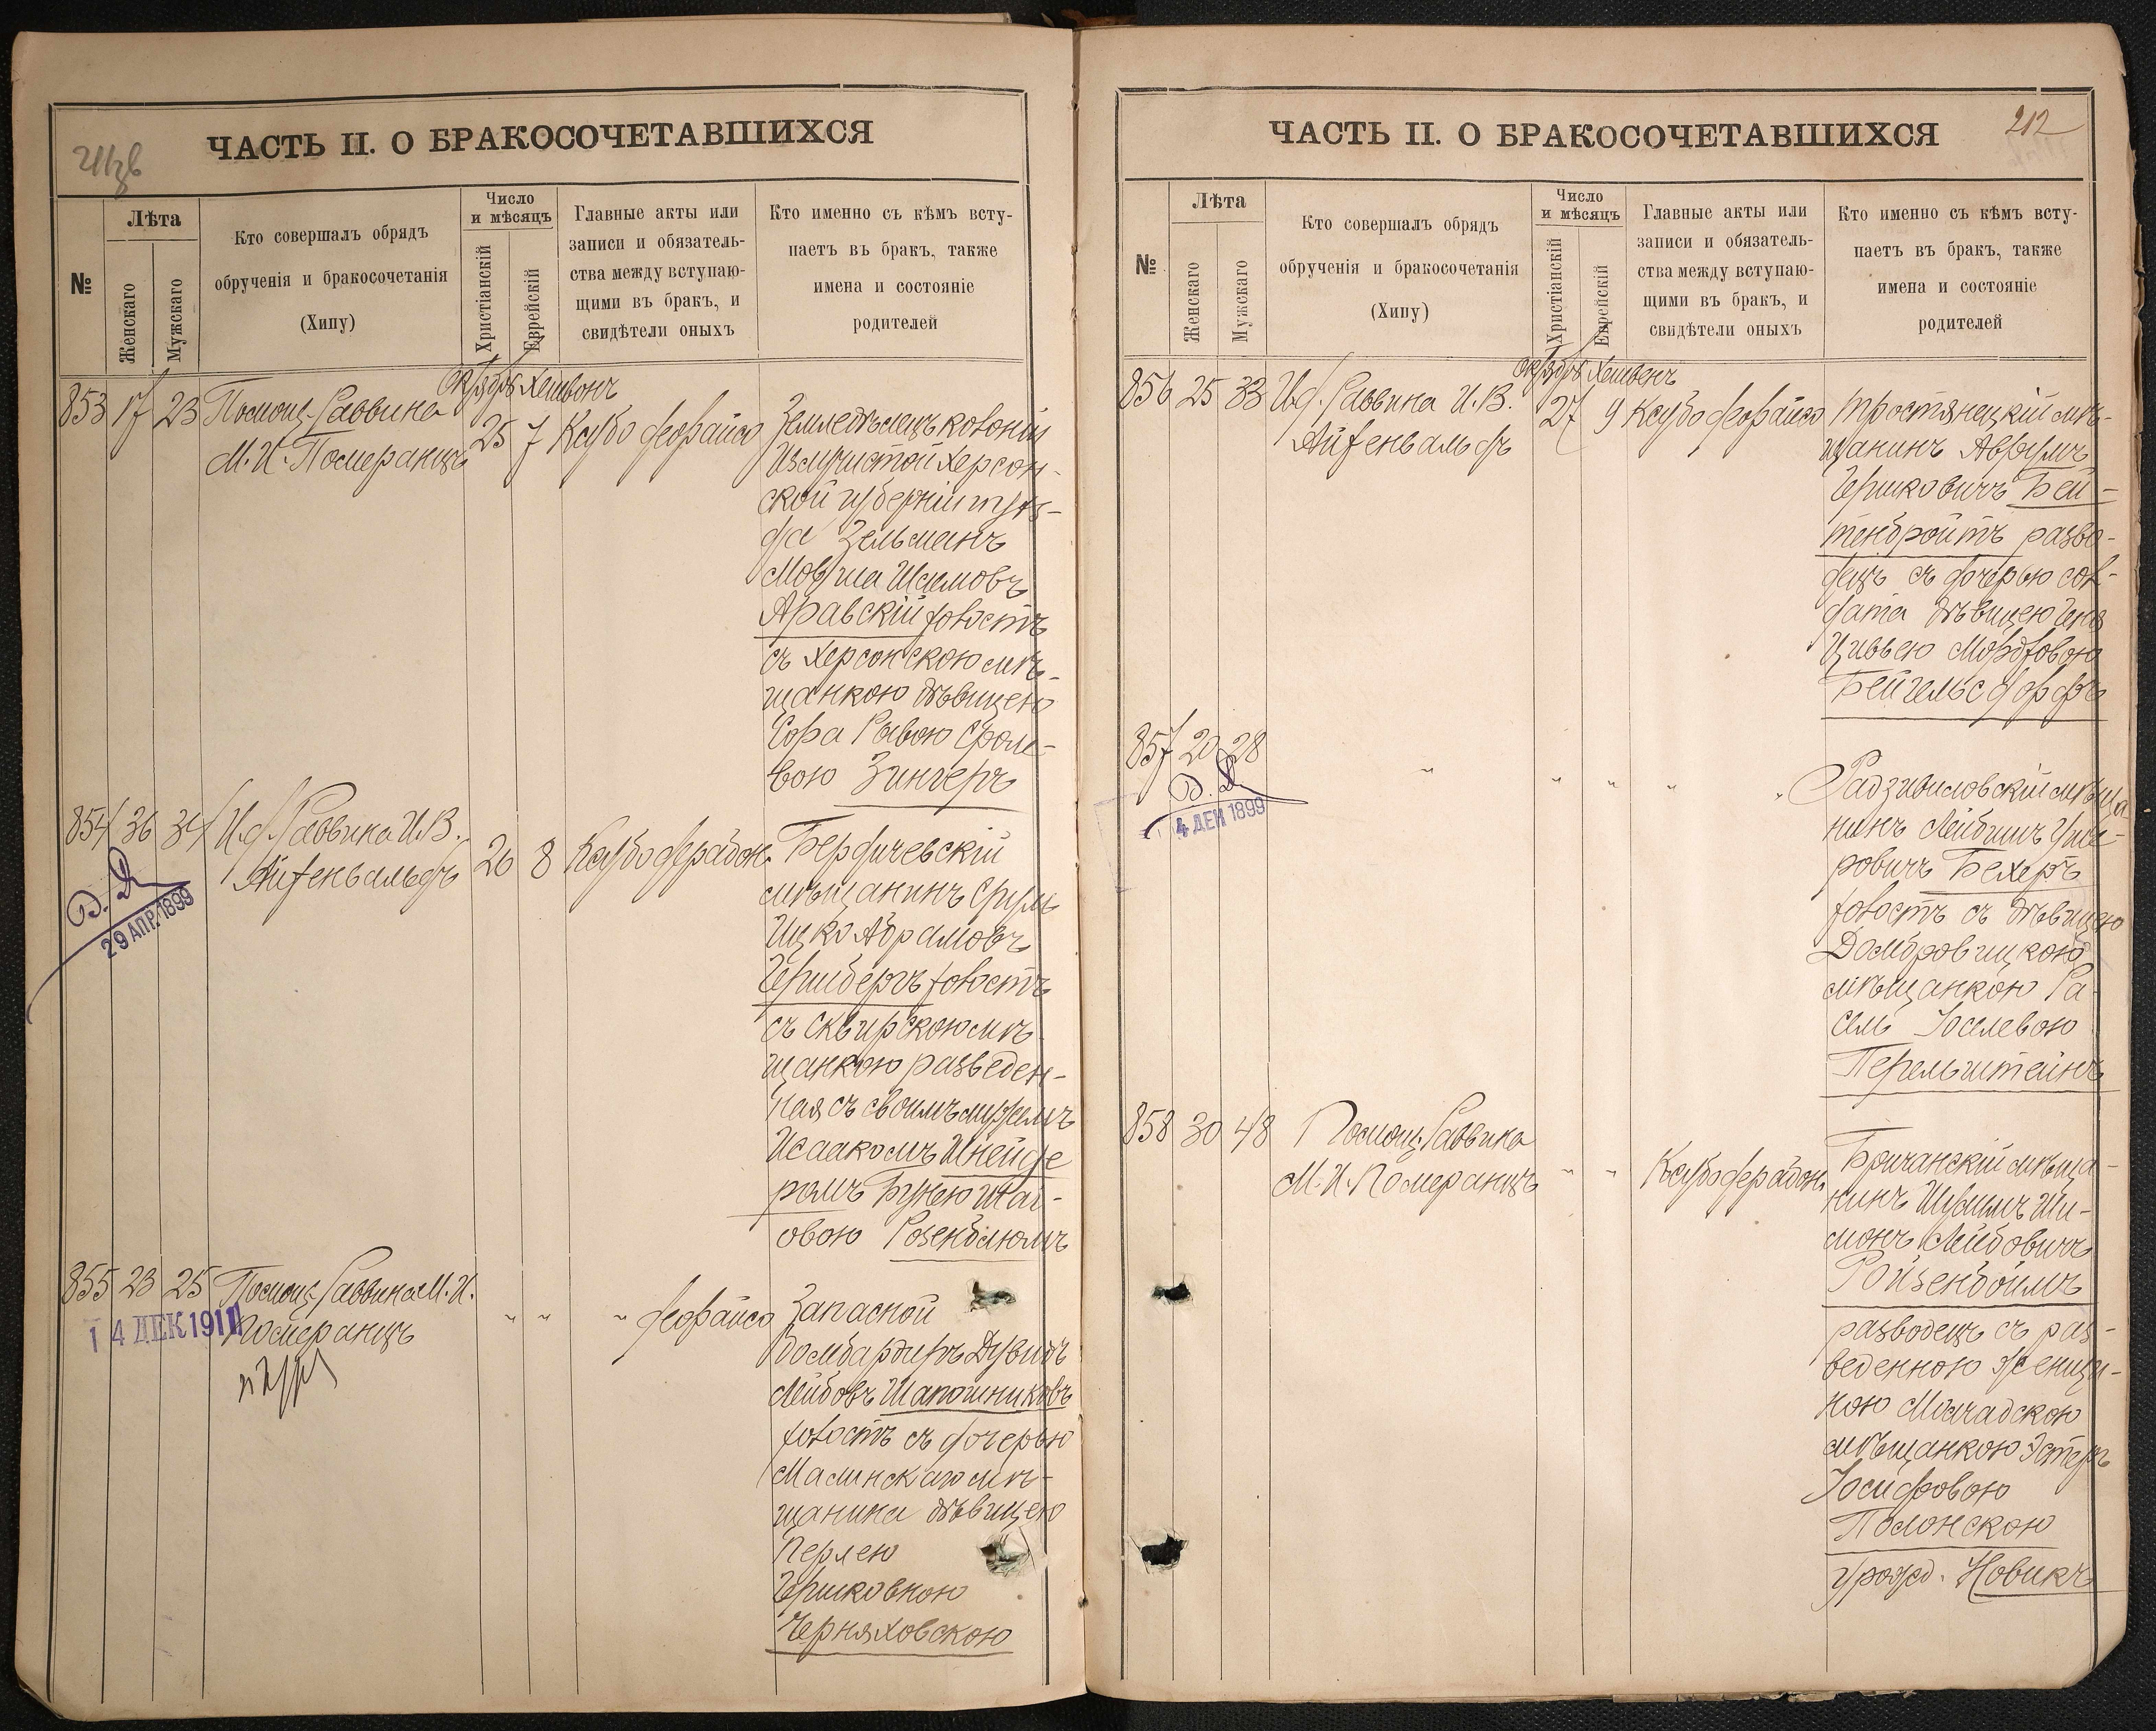 ЧАСТЬ II. О БРАКОСОЧЕТАВШИХСЯ
№
Лѣта
Женскаго
Мужскаго
Кто совершалъ обрядъ
обрученія и бракосочетанія
(Хипу)
Число
и мѣсяцъ
Христіанскій
Еврейскій
Главные акты или
записи и обязатель-
ства между вступаю-
щими въ бракъ, и
свидѣтели оныхъ
Кто именно съ кѣмъ всту-
паетъ въ бракъ, также
имена и состояніе
родителей
Октября Хешвонъ
853 17 23 Помощ. Раввина
М. И. Померанцъ
25 7 Ксубо
Земледѣлецъ колоніи
Излучистой Херсон-
ской губерніи
Зельманъ
Мовша
Аравскій холостъ
съ Херсонскою мѣ-
щанкою дѣвицею
Сора Ривою Срол-
вою Зингеръ
854 36 34 И. д. Раввина И. В.
Айзенвальдъ
26 8 Ксубо
Бердичевскій
мѣщанинъ Сруль
Ицко Абрамовъ
Гершбергъ холостъ
съ Сквирскою мѣ-
щанкою разведен-
ная съ своимъ мужемъ
Исаакомъ Шнейде
ромъ Бунею Шаи-
овою Розенблюмъ
29 АПР. 1899
855 23 25 Помощ. Раввина М. И.
Померанцъ
" " "
Запасной
бомбардиръ Дувидъ
Лейбовъ Шапошниковъ
холостъ съ дочерью
Малинскаго мѣ-
щанина дѣвицею
Перлею
Гершковною
Черняховскою
14 ДЕК 1911
212
ЧАСТЬ II. О БРАКОСОЧЕТАВШИХСЯ
№
Лѣта
Женскаго
Мужскаго
Кто совершалъ обрядъ
обрученія и бракосочетанія
(Хипу)
Число
и мѣсяцъ
Христіанскій
Еврейскій
Главные акты или
записи и обязатель-
ства между вступаю-
щими въ бракъ, и
свидѣтели оныхъ
Кто именно съ кѣмъ всту-
паетъ въ бракъ, также
имена и состояніе
родителей
Октября Хешвенъ
856 25 33 И. д. Раввина И. В.
Айзенвальдъ
27 9 Ксубо
Тростянецкій мѣ-
щанинъ Аврумъ
Гершковичъ Бей-
тенбройтъ разво-
децъ съ дочерью сол-
дата дѣвицею
Цивьею Мордковою
Бейгельсдорфъ
857 20 28
" " " "
Радзивиловскій мѣща
нинъ Лейбишъ Уше-
ровичъ Бехеръ
холостъ съ дѣвицею
Домбровицкою
мѣщанкою Ра-
Іоселевою
Перельштейнъ
4 ДЕК 1899
858 30 48 Помощ. Раввина
М. И. Померанцъ
" " Ксубо
Бричанскій мѣща-
нинъ Ши-
монъ Лейбовичъ
Ройзенбоймъ
разводецъ съ раз-
веденною женщи-
ною
мѣщанкою Эстеръ
Іосифовою
Полонскою
урожд. Новикъ